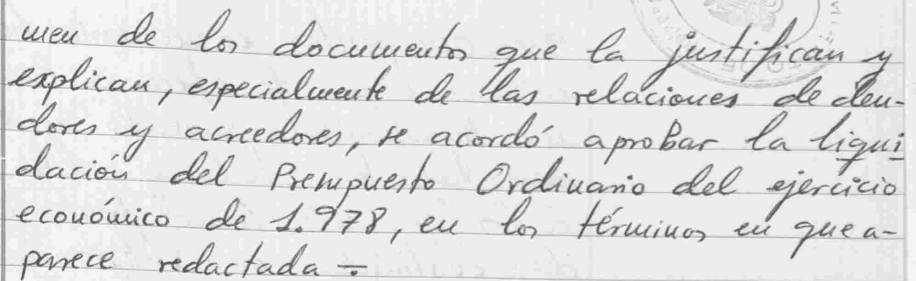 men de los documentos que la justifican y
explican, especialmente de las relaciones de deu-
dores y acreedores, se acordó aprobar la liqui
dación del Presupuesto Ordinario del ejercicio
económico de 1.978, en los términos en que a-
parece redactada -